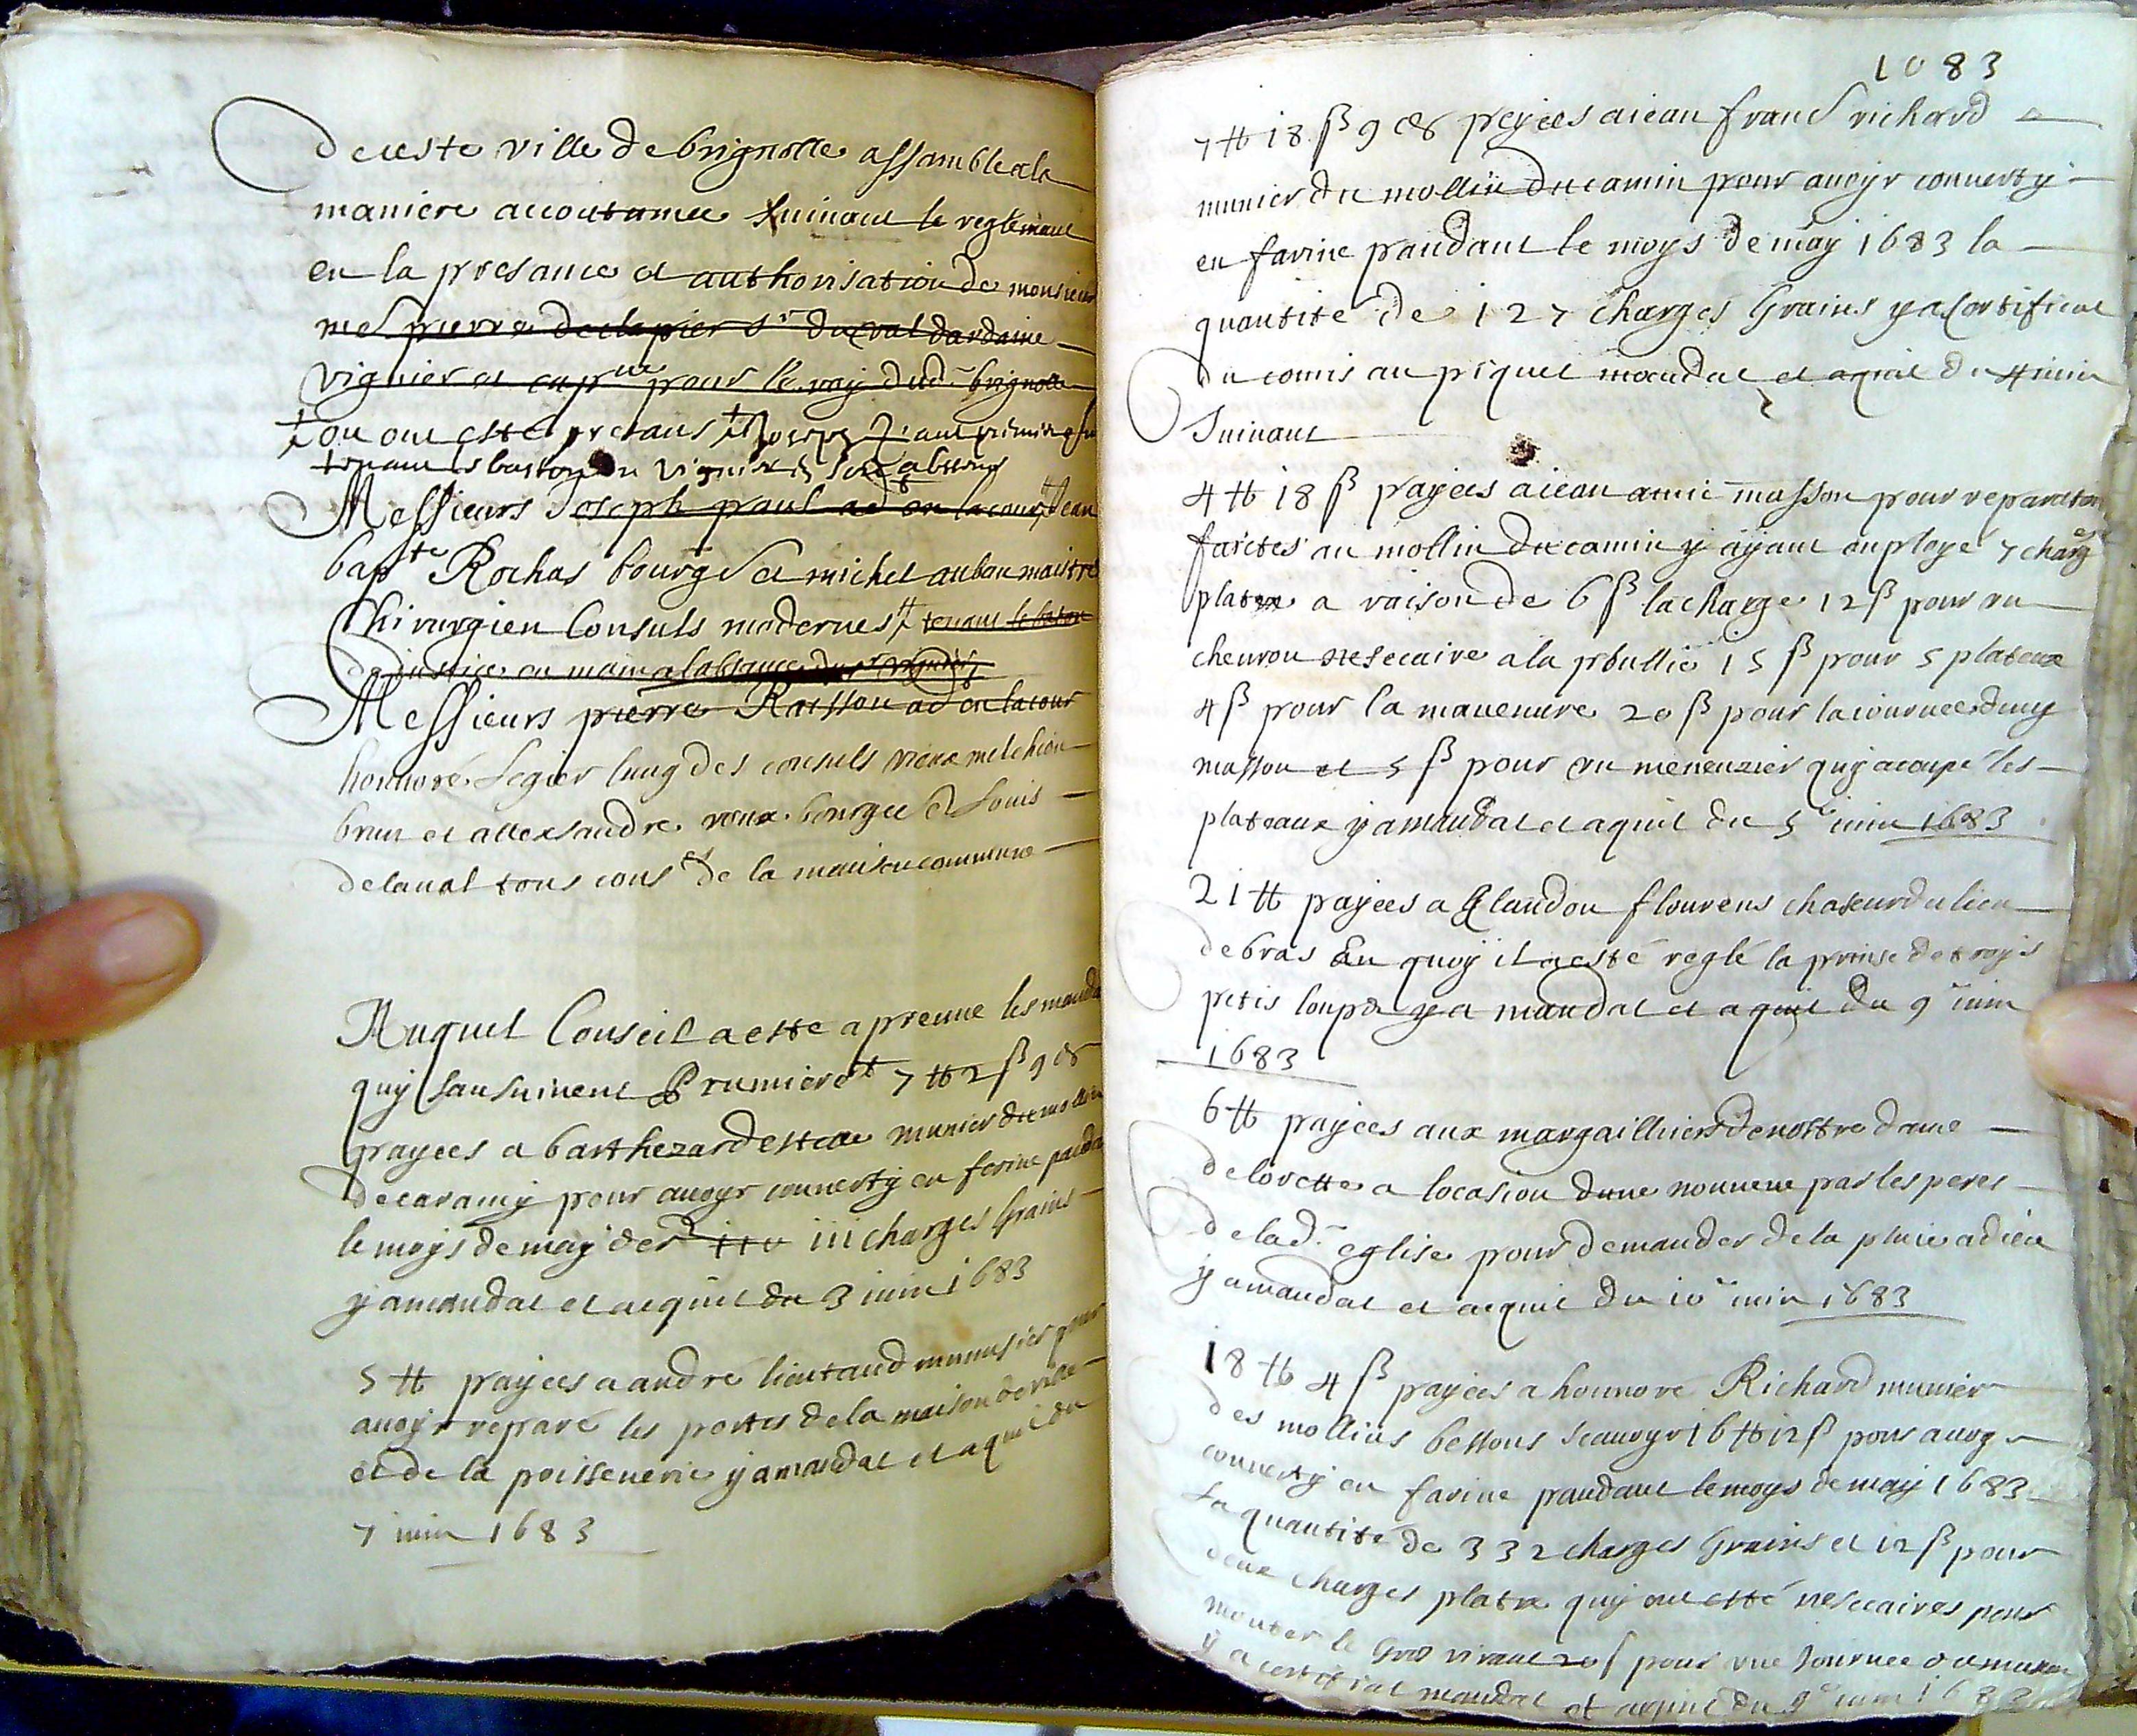 de ceste ville de brignolle assamble a la
maniere accoutumee suivant le reglemant
en la presance et authorisation de monsieur
mes pierre declapier sr du val dardaine
viguier et cap.ne pour le roy dud brignolle
ou ont esté presans
tenant le baston du viguier
Messieurs Joseph paul ad en la cour Jean
bapte Rochas bourgs et michel auban maistre
Chirurgien Consuls modernes tenant le baston
de justice en main a labsance du sr viguier
Messieurs pierre Raisson ad en la cour
honnoré Segier lung des consuls vieux melchion
brun et allexsandre roux bourgeois et Louis
delaval tous conser de la maison commune
Auquel Conseil a esté apreuve les manda
quy sansuivent Prumieret 7 tt 2 ß 9 d
payees a barthe munier du mollin
de caramy pour avoyr converty en farine pandan
le moys de may der 110 111 charges Grains
y a mandat et acquit du 3 juin 1683
5 tt payees a andré lieutaud menusier pour
avoyr reparé les portes de la maison de ville
et de la poissenerie y a mandat et aquit du
7 juin 1683
1083
7 tt 18 ß 9 d payees a jean frans richard
munier du mollin du camin pour avoyr converty
en farine pandant le moys de may 1683 la
quantité de 127 charges Grains y a certificat
du comis au piquet mandat et aquit du 4 juin
Suivant
4 tt 18 ß payees a jean amic masson pour reparation
faictes au mollin du camin y ayant employé 7 charg
platre a raison de 6 ß la charge 12 ß pour un
chevron nesecaire a la 15 ß pour 5 plateaux
4 ß pour la mauenure 20 ß pour la journee duny
masson et 5 ß pour un meneuzier quy a coupé les
plateaux y a mandat et aquit du 5e juin 1683
21 tt payees a Glaudou flourens chaseur du lieu
de bras En quoy il a esté reglé la prinse de troys
petis loups y a mandat et aquit du 9e juin
1683
6 tt payees aux margailliers de nostre dame
de lorette a locasion dune nouvene par les peres
de lad. eglise pour demander de la pluie a dieu
y a mandat et acquit du 10e juin 1683
18 tt 4 ß payees a honnoré Richard munier
des mollins bessons scavoyr 16 tt 12 ß pour avoyr
converty en farine pandant le moys de may 1683
la quantité de 332 charges Grains et 12 ß pour
deux charges platre quy ont esté nesecaires pour
monter le Gros virant 20 ß pour une Journee
y a certificat mandat et aquit du 9e juin 1683